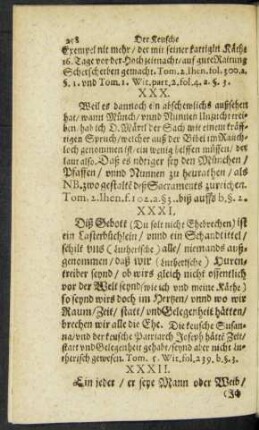 258 Der Keusche
Exempel nit mehr / der mit seiner karrigin Käthe
16. Tage vor der Hochzeitnacht / auf gute Raitung
Scherscherben gemacht. Tom. 2. Ihen. fol. 300. 2.
§. 1. vnd Tom. 1. Wit. part. 2. fol. 4. 2. §. 3.
XXX.
Weil es dannoch ein abschewlichs aussehen
hat / wann Münch / vnnd Nunnen Unzucht trei-
ben / hab ich D. Märtl der Sach mit einem kräff-
tigen Spruch / welcher auß der Bibel im Rauch-
loch genommen ist / ein wenig helffen müssen / der
laut also. Daß es nöhtiger sey den München /
Pfaffen / vnnd Nunnen zu heurathen / als
NB. zwo gestalt deß Sacraments zureichen.
Tom. 2. Ihen. f. 102. 2. §. 3. biß auffs b. §. 2.
XXXI.
Diß Gebott (Du solt nicht Ehebrechen) ist
ein Lasterbüchlein / vnnd ein Schandtittel /
schilt vns (lutherische) alle / niemands auß-
genommen / daß wir (lutherische) Huren-
treiber seynd / ob wirs gleich nicht öffentlich
vor der Welt seynd / wie ich vnd meine Käthe)
so seynd wirs doch im Hertzen / vnnd wo wir
Raum / Zeit / statt / vnd Gelegenheit hätten /
brechen wir alle die Ehe. Die keusche Susan-
na / vnd der keusche Patriarch Joseph hätte Zeit /
statt vnd Gelegenheit gehabt / seynd aber nicht lu-
therisch gewesen. Tom. 5. Wit. fol. 239. b. §. 3.
XXXII.
Ein jeder / er seye Mann oder Weib /